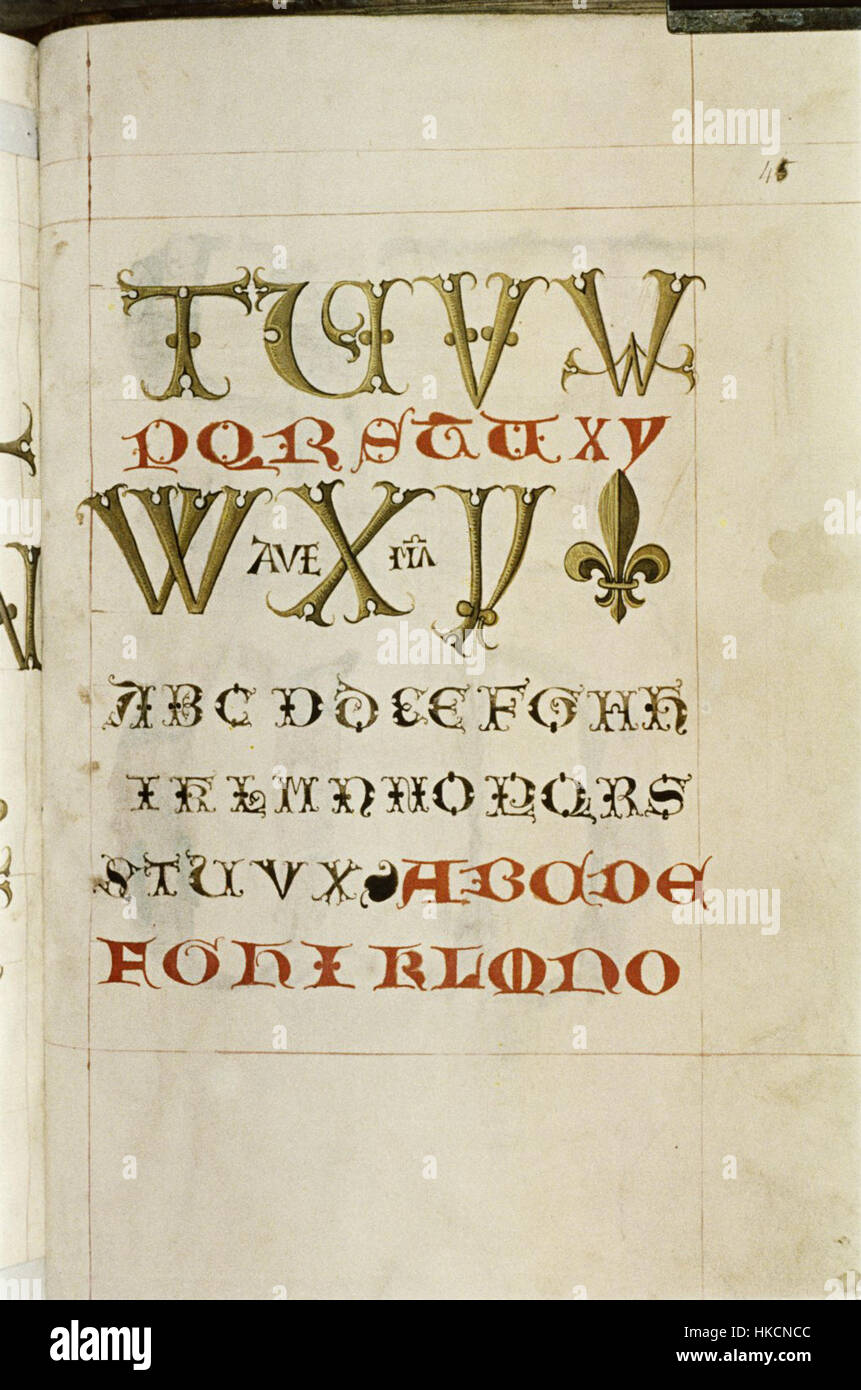 45
T U V W
P Q R S T T X Y
W AVE X M̅A Y
A B C D D E E F G H H
I K L M N N O P Q R S
S T U V X A B C D E
F G H I K L M N O
alamy stock photo
HKCNCC
www.alamy.com